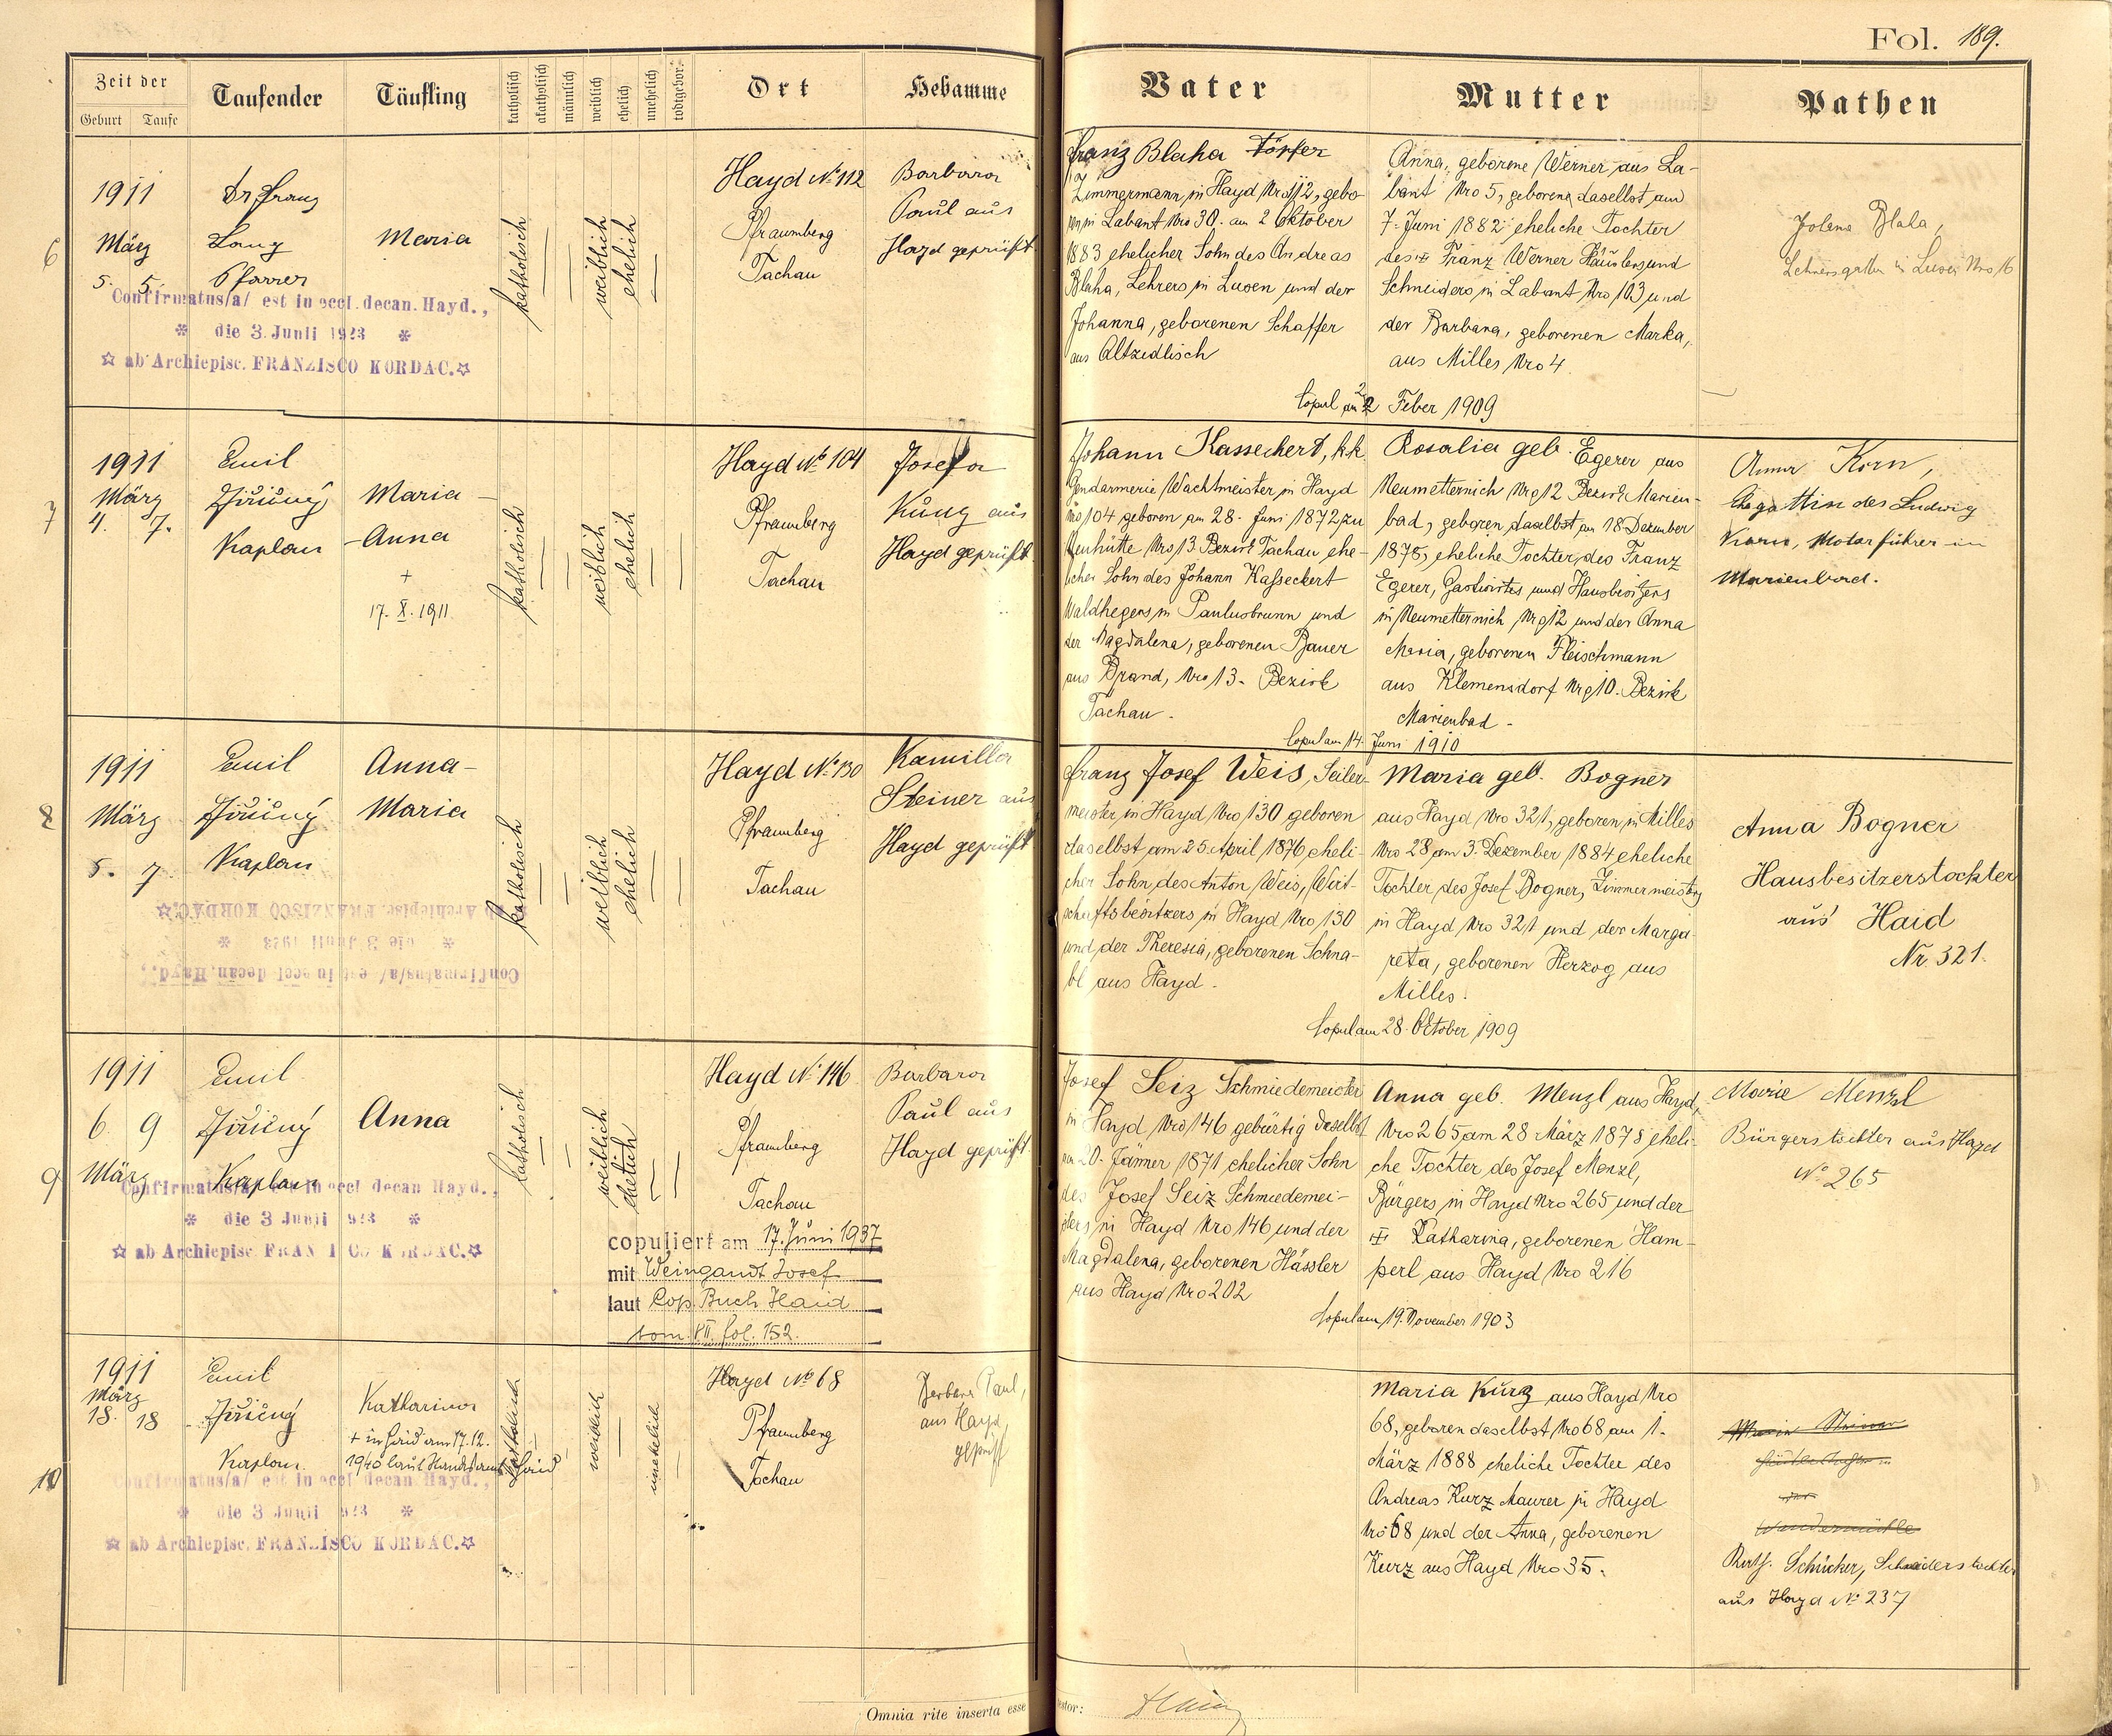 Fol. 189.
Zeit der
Geburt Taufe
Taufender
Täufling
katholisch
akatholisch
männlich
weiblich
ehelich
unehelich
todtgebor.
Ort
Hebamme
Vater
Mutter
Pathen
6
1911
März
5. 5.
Dr Franz
Lang
Pfarrer
Maria
katholisch
weiblich
ehelich
Hayd No 112
Pfraumberg
Tachau
Barbara
Paul aus
Hayd geprüft
Confirmatus/a/ est in eccl. decan. Hayd.,
* die 3. Junii 1923 *
☆ ab Archiepisc. FRANZISCO KORDAC. ☆
Franz Blaha Töpfer
Zimmermann, in Hayd Nro 112, gebo-
ren in Labant Nro 30. am 2 Oktober
1883 ehelicher Sohn des Andreas
Blaha, Lehrers in Lusen und der
Johanna, geborenen Schaffer
aus Altzedlisch
Anna, geborene Werner aus La-
bant Nro 5, geboren daselbst am
7. Juni 1882 eheliche Tochter
des Franz Werner Häuslers und
Schneiders in Labant Nro 103 und
der Barbara, geborenen Marka,
aus Milles Nro 4.
Copul am 2 Feber 1909
Blaha,
Lehrersgattin in Lusen Nro 16
7
1911
März
4. 7.
Emil
Jiřičný
Kaplan
Maria
Anna
+
17. X. 1911.
katholisch
weiblich
ehelich
Hayd No 104
Pfraumberg
Tachau
Josefa
Kung aus
Hayd geprüft
Johann Kasseckert, k.k.
Gendarmerie Wachtmeister in Hayd
Nro 104 geboren am 28. Juni 1872 zu
Neuhütte Nro 13. Bezirk Tachau, ehe-
licher Sohn des Johann Kasseckert
Waldhegers in Paulusbrunn und
der Magdalena, geborenen Bauer
aus Brand, Nro 13. Bezirk
Tachau.
Rosalia geb. Egerer aus
Neumetternich Nro 12 Bezirk Marien-
bad, geboren daselbst am 18 Dezember
1878, eheliche Tochter des Franz
Egerer, Gastwirtes und Hausbesitzers
in Neumetternich Nro 12 und der Anna
Maria, geborenen Fleischmann
aus Klemensdorf Nro 10. Bezirk
Marienbad.
Copul am 14. Juni 1910
Anna Korn,
Ehegattin des Ludwig
Korn, Motorführer in
Marienbad.
8
1911
März
5. 7.
Emil
Jiřičný
Kaplan
Anna
Maria
katholisch
weiblich
ehelich
Hayd No 130
Pfraumberg
Tachau
Kamilla
Steiner aus
Hayd geprüft
Confirmatus/a/ est in eccl decan. Hayd.,
* die 3 Junii 1923 *
☆ ab Archiepisc. FRANZISCO KORDÁC. ☆
Franz Josef Weis, Seiler-
meister in Hayd Nro 130 geboren
daselbst am 25. April 1876, eheli-
cher Sohn des Anton Weis, Wirt-
schaftsbesitzers in Hayd Nro 130
und der Theresia, geborenen Schna-
bl aus Hayd.
Maria geb. Bogner
aus Hayd Nro 321, geboren in Milles
Nro 28 am 3. Dezember 1884 eheliche
Tochter des Josef Bogner, Zimmermeisters
in Hayd Nro 321 und der Marga-
reta, geborenen Herzog aus
Milles.
Copul am 28. Oktober 1909
Anna Bogner
Hausbesitzerstochter
aus Haid
Nr. 321.
9
1911
6. 9
März
Emil
Jiřičný
Kaplan
Anna
katholisch
weiblich
ehelich
Hayd No 146
Pframberg
Tachau
Barbara
Paul aus
Hayd geprüft
Confirmatus/a/ est in eccl decan Hayd.,
* die 3 Junii 1923 *
☆ ab Archiepisc. FRANZISCO KORDAC. ☆
copuliert am 17. Juni 1937
mit Weingandt Josef
laut Cop. Buch Haid
tom. VII. fol. 152.
Josef Seiz Schmiedemeister
in Hayd Nro 146 gebürtig daselbst
am 20. Jänner 1871 ehelicher Sohn
des Josef Seiz Schmiedemei-
sters in Hayd Nro 146 und der
Magdalena, geborenen Hässler
aus Hayd Nro 202
Anna geb. Menzl aus Hayd,
Nro 265 am 28 März 1878 eheli-
che Tochter des Josef Menzl,
Bürgers in Hayd Nro 265 und der
Katharina, geborenen Ham-
perl aus Hayd Nro 216
Copul am 19. November 1903
Marie Menzl
Bürgerstochter aus Hayd
No 265
10
1911
März
18. 18
Emil
Jiřičný
Kaplan
Katharina
+ in Haid am 17.12.
1940 laut Standesamt Haid
katholisch
weiblich
unehelich
Hayd No 68
Pfraumberg
Tachau
Barbara Paul,
aus Hayd,
geprüft
Confirmatus/a/ est in eccl decan Hayd.,
* die 3 Junii 1923 *
☆ ab Archiepisc. FRANZISCO KORDAC. ☆
Maria Kurz aus Hayd Nro
68, geboren daselbst Nro 68 am 1.
März 1888 eheliche Tochter des
Andreas Kurz Maurer in Hayd
Nro 68 und der Anna, geborenen
Kurz aus Hayd Nro 35.
Schücker, Schneiderstochter
aus Hayd No 237
Omnia rite inserta esse